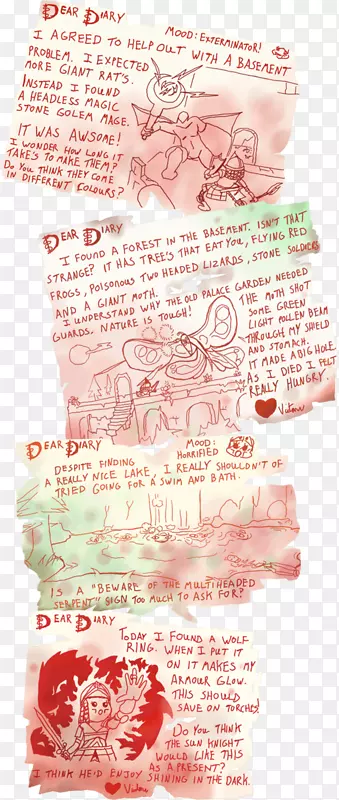 Dear Diary
Mood: Exterminator!
I agreed to help out with a basement
problem. I expected
more giant rat's.
Instead I found
a headless magic
stone golem mage.
It was awsome!
I wonder how long it
take's to make them?
Do you think they come
in different colours?
Dear Diary
I found a forest in the basement. Isn't that
strange? It has tree's that eat you, flying red
frogs, poisonous two headed lizards, stone soldiers
and a giant moth.
I understand why the old palace garden needed
guards. Nature is tough!
The moth shot
some green
light pollen beam
through my shield
and stomach.
It made a big hole.
As I died I felt
really hungry.
Dear Diary
Mood:
Horrified
Despite finding
a really nice lake, I really shouldn't of
tried going for a swim and bath.
Is a "beware of the multiheaded
serpent" sign too much to ask for?
Dear Diary
Today I found a wolf
ring. When I put it
on it makes my
armour glow.
This should
save on torches!
Do you think
the Sun Knight
would like this
as a present?
I think he'd enjoy shining in the dark.